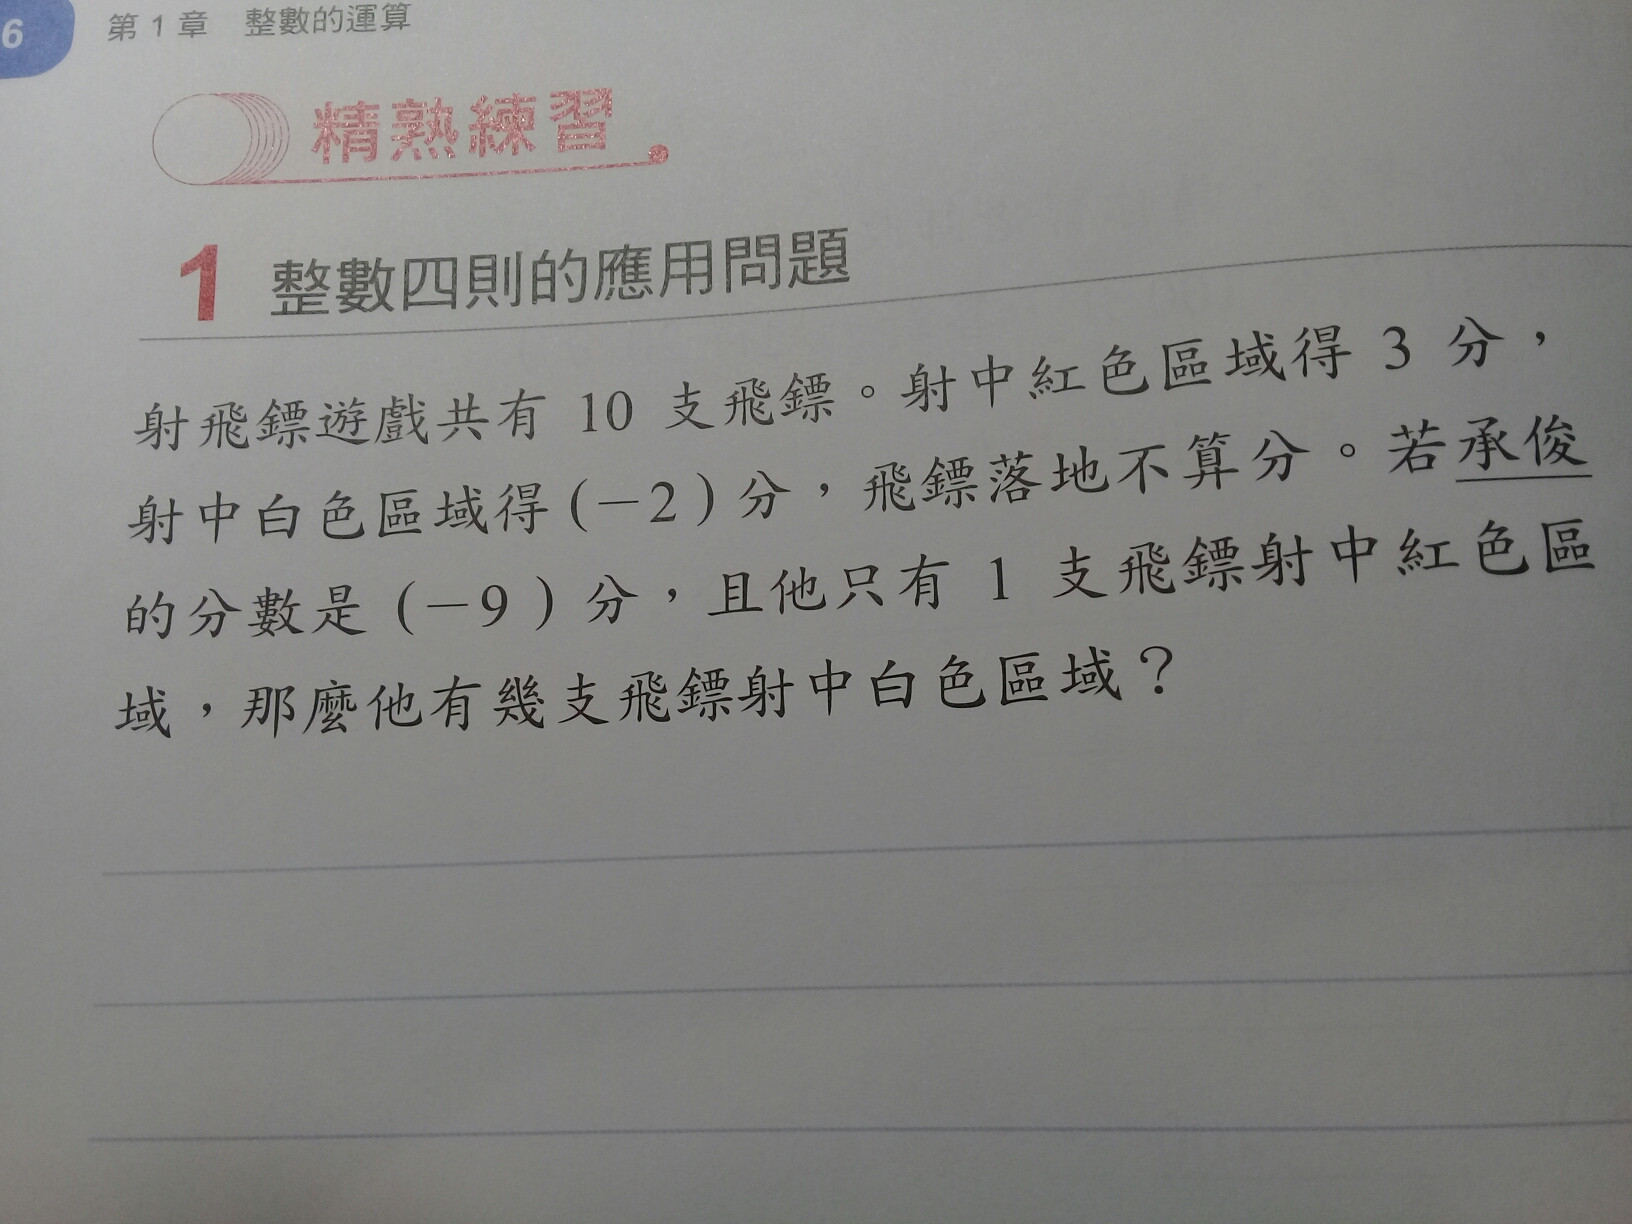 6
第 1 章 整數的運算
精熟練習
1 整數四則的應用問題
射飛鏢遊戲共有 10 支飛鏢。射中紅色區域得 3 分，
射中白色區域得(－2)分，飛鏢落地不算分。若承俊
的分數是(－9)分，且他只有 1 支飛鏢射中紅色區
域，那麼他有幾支飛鏢射中白色區域？